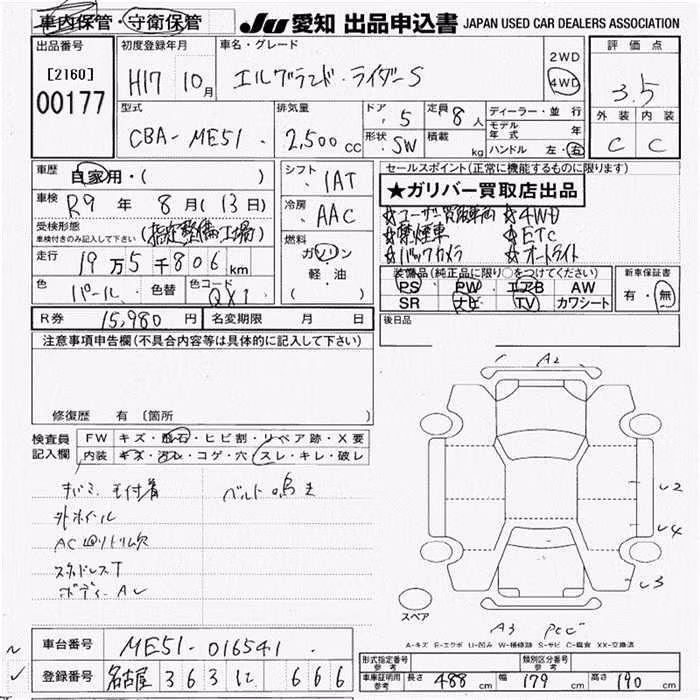 車内保管・守衛保管
JU 愛知 出品申込書 JAPAN USED CAR DEALERS ASSOCIATION
出品番号
[2160]
00177
初度登録年月
H17 10月
車名・グレード
エルグランド・ライダーS
2WD
4WD
評価点
3.5
外装 内装
C C
型式
CBA-ME51
排気量
2,500cc
ドア
5
定員
8人
形状
SW
積載
kg
ディーラー・並行
モデル年式 年
ハンドル 左・右
車歴
自家用・( )
車検
R9年 8月(13日)
受検形態
車検付きのみ記入して下さい
(指定整備工場)
走行
19万5千806km
色
パール
色替
色コード
QX1
シフト
IAT
冷房
AAC
燃料
ガソリン
軽・油
( )
セールスポイント(正常に機能するものに限り)
★ガリバー買取店出品
☆ユーザー買取車両 ☆4WD
☆禁煙車 ☆ETC
☆バックカメラ ☆オートライト
装備品(純正品に限り○をつけてください)
PS PW エアB AW
SR ナビ TV カワシート
新車保証書
有・無
R券 15,980円
名変期限 月 日
後日品
注意事項申告欄(不具合内容等は具体的に記入して下さい)
修復歴 有〔箇所
検査員
記入欄
FW キズ・飛石・ヒビ割・リペア跡・X要
内装 キズ・汚レ・コゲ・穴・スレ・キレ・破レ
外ホイール
スタッドレスT
ボディーAし
ベルト鳴き
A2
し2
し4
し3
スペア
A3
A-キズ E-エクボ U-凹み W-補修跡 S-サビ C-腐食 XX-交換済
車台番号
ME51-016541
登録番号
名古屋 363 に 666
形式指定番号
参考
類別区分番号
参考
車庫証明用
参考
長さ 488cm
幅 179cm
高さ 190cm